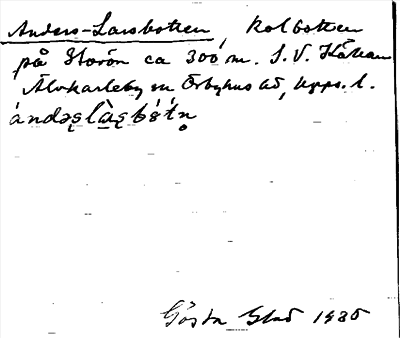 Anders-Larsbotten, Kolbotten
på Storön ca 300 m. S.V. Kåkan
Älvkarleby sn Örbyhus hd, Upps. l.
ándəşlàşbótn̥
Gösta Glad 1935